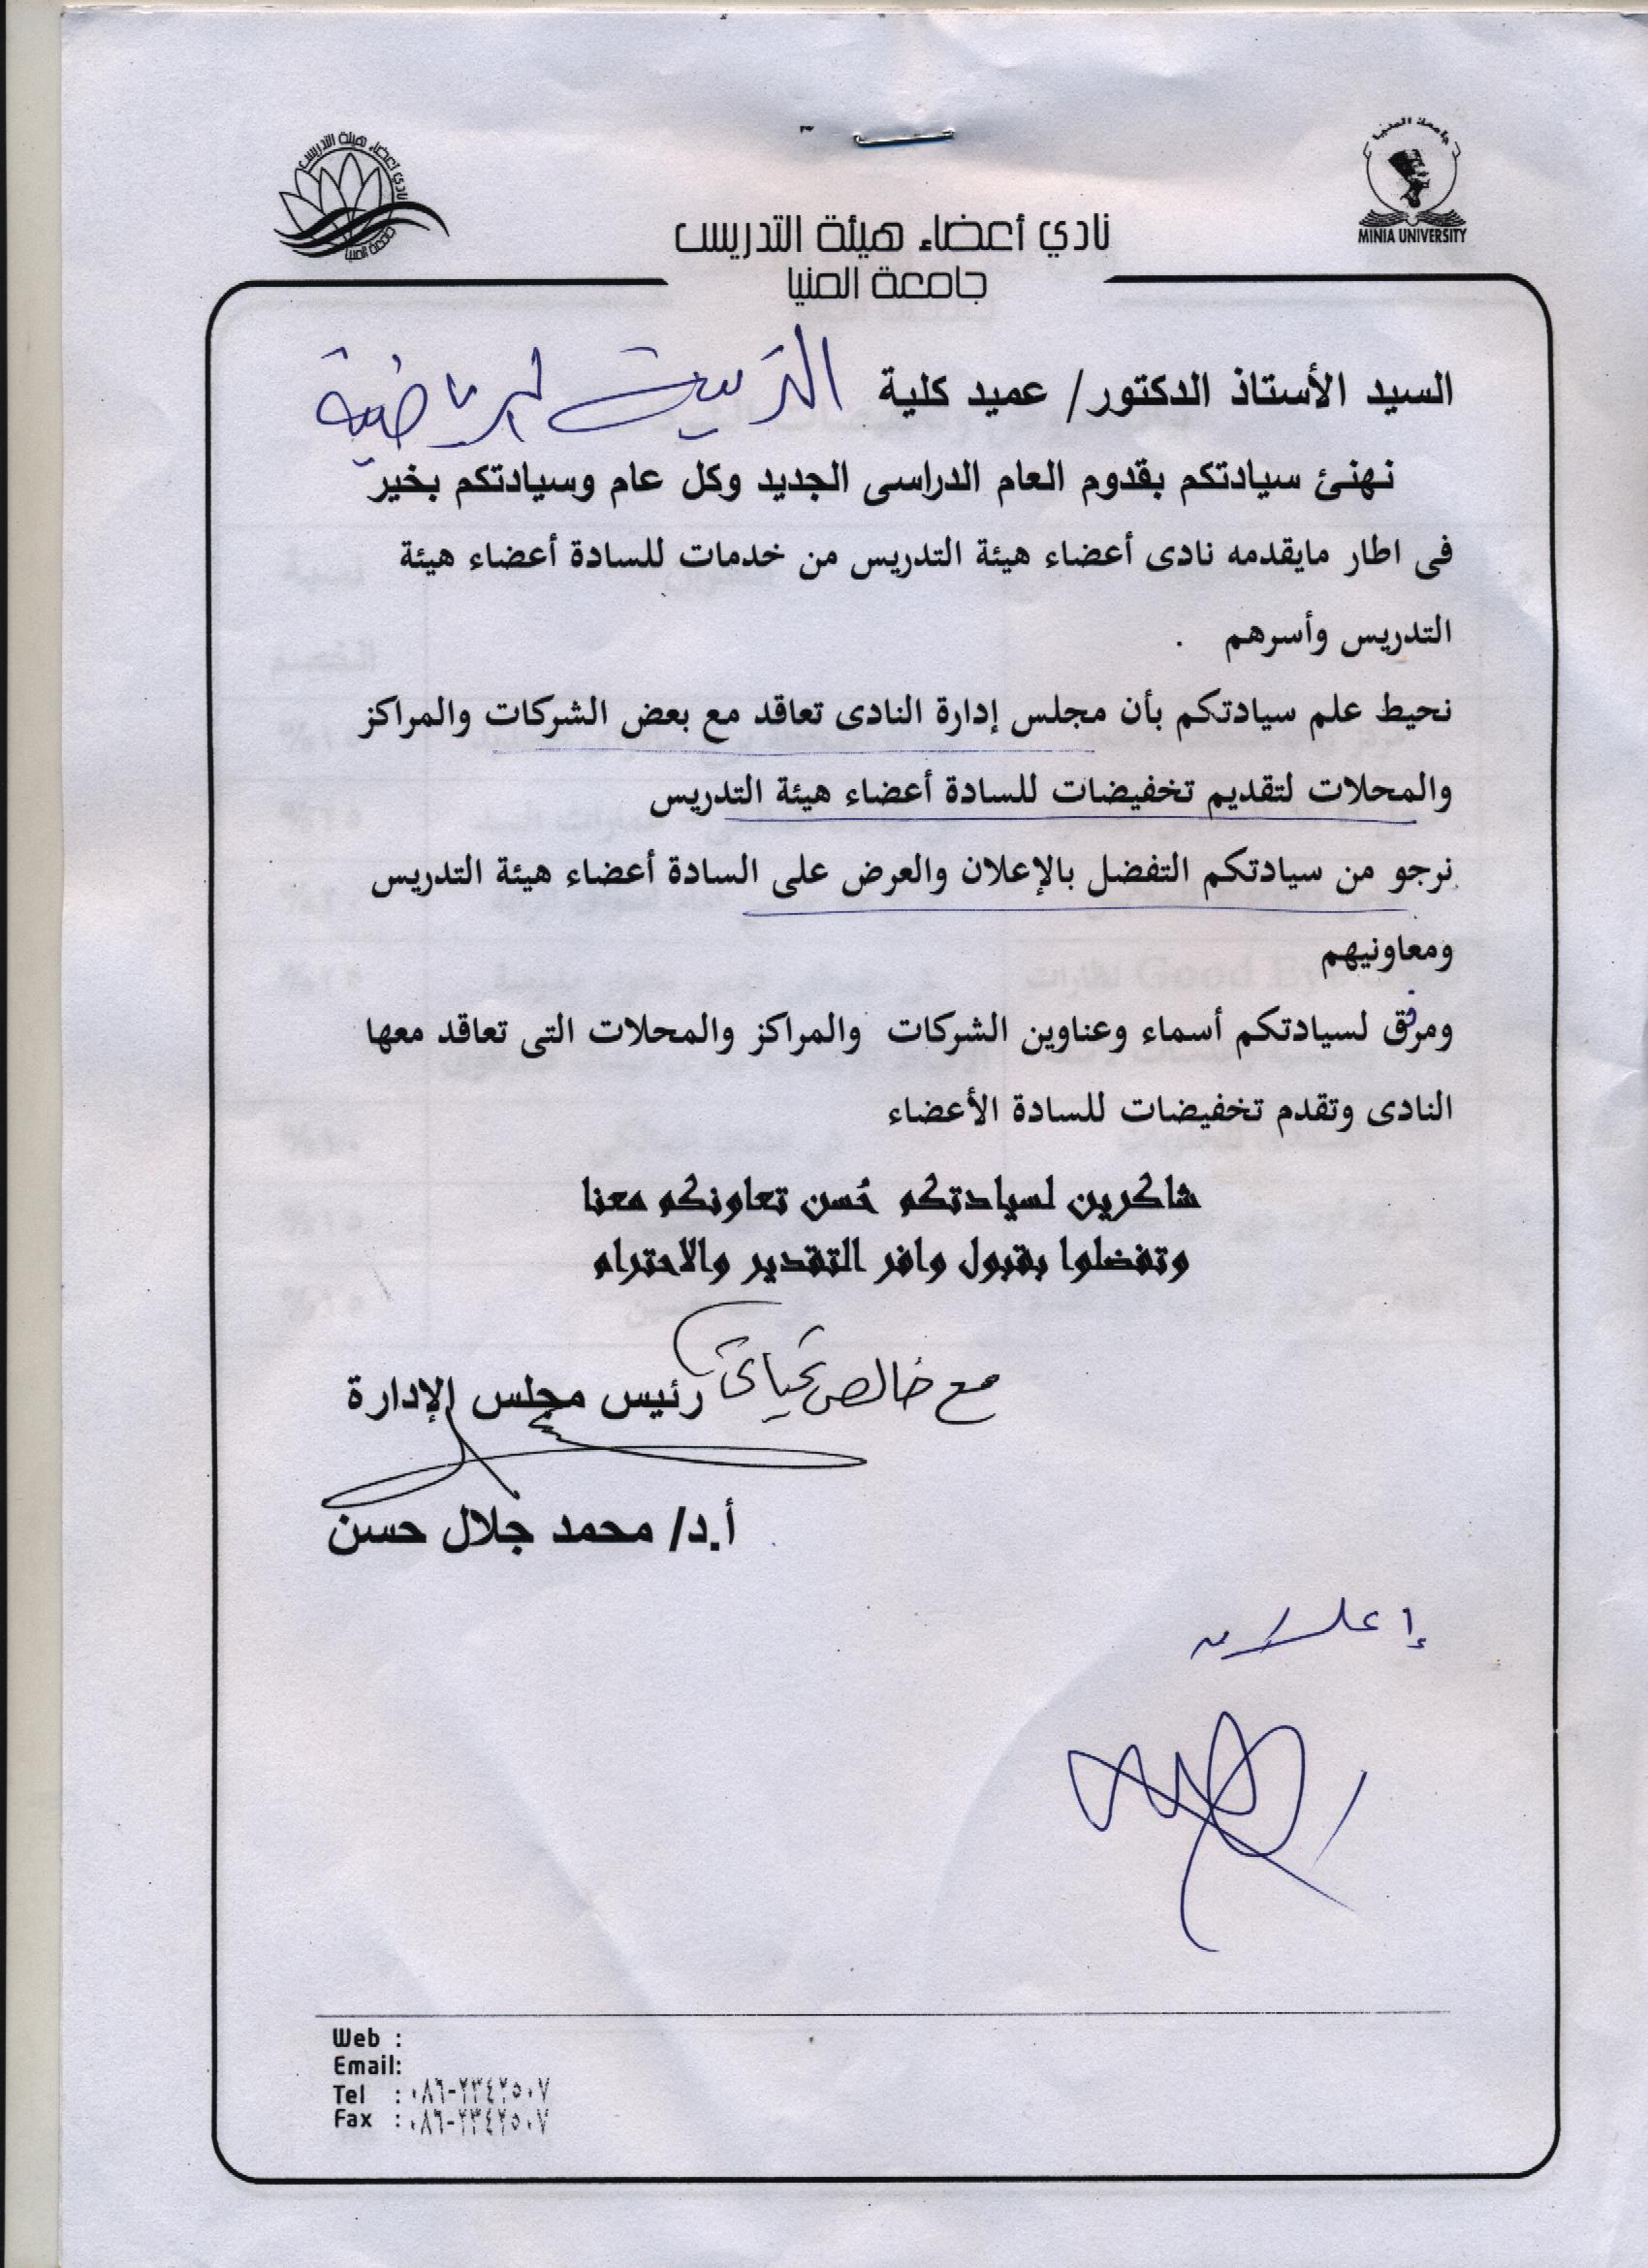 جامعة المنيا
MINIA UNIVERSITY
نادي أعضاء هيئة التدريس
جامعة المنيا
نادي أعضاء هيئة التدريس
جامعة المنيا
السيد الأستاذ الدكتور/ عميد كلية التربية الرياضية
نهنئ سيادتكم بقدوم العام الدراسى الجديد وكل عام وسيادتكم بخير
فى اطار مايقدمه نادى أعضاء هيئة التدريس من خدمات للسادة أعضاء هيئة
التدريس وأسرهم .
نحيط علم سيادتكم بأن مجلس إدارة النادى تعاقد مع بعض الشركات والمراكز
والمحلات لتقديم تخفيضات للسادة أعضاء هيئة التدريس
نرجو من سيادتكم التفضل بالإعلان والعرض على السادة أعضاء هيئة التدريس
ومعاونيهم
ومرفق لسيادتكم أسماء وعناوين الشركات والمراكز والمحلات التى تعاقد معها
النادى وتقدم تخفيضات للسادة الأعضاء
شاكرين لسيادتكم حُسن تعاونكم معنا
وتفضلوا بقبول وافر التقدير والاحترام
مع خالص تحياتى
رئيس مجلس الإدارة
أ.د/ محمد جلال حسن
إعلان
Web :
Email:
Tel : ٠٨٦-٢٣٤٢٥٠٧
Fax : ٠٨٦-٢٣٤٢٥٠٧